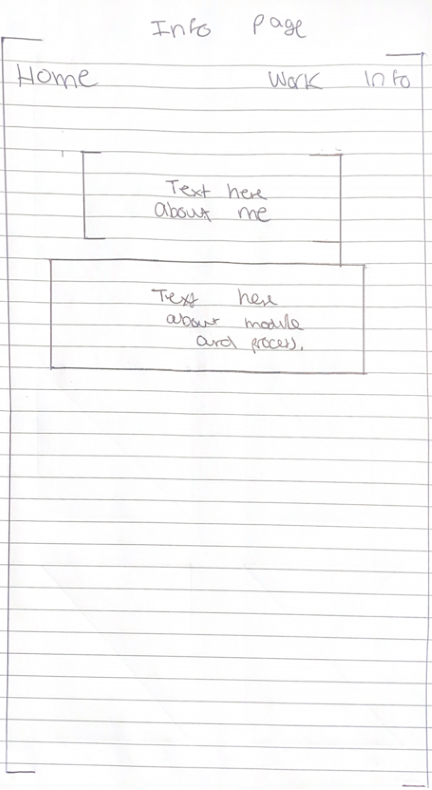 Info Page
Home Work Info
Text here
about me
Text here
about module
and process.